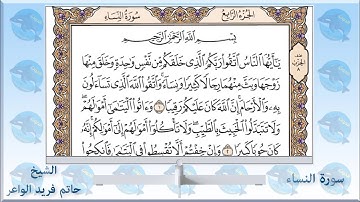 الجزء الرابع
سورة النساء
بسم الله الرحمن الرحيم
يَٰٓأَيُّهَا ٱلنَّاسُ ٱتَّقُوا۟ رَبَّكُمُ ٱلَّذِى خَلَقَكُم مِّن نَّفْسٍ وَٰحِدَةٍ وَخَلَقَ مِنْهَا
زَوْجَهَا وَبَثَّ مِنْهُمَا رِجَالًا كَثِيرًا وَنِسَآءً وَٱتَّقُوا۟ ٱللَّهَ ٱلَّذِى تَسَآءَلُونَ
بِهِۦ وَٱلْأَرْحَامَ إِنَّ ٱللَّهَ كَانَ عَلَيْكُمْ رَقِيبًا ١ وَءَاتُوا۟ ٱلْيَتَٰمَىٰٓ أَمْوَٰلَهُمْ
وَلَا تَتَبَدَّلُوا۟ ٱلْخَبِيثَ بِٱلطَّيِّبِ وَلَا تَأْكُلُوٓا۟ أَمْوَٰلَهُمْ إِلَىٰٓ أَمْوَٰلِكُمْ إِنَّهُۥ
كَانَ حُوبًا كَبِيرًا ٢ وَإِنْ خِفْتُمْ أَلَّا تُقْسِطُوا۟ فِى ٱلْيَتَٰمَىٰ فَٱنكِحُوا۟
سورة النساء
الشيخ
حاتم فريد الواعر